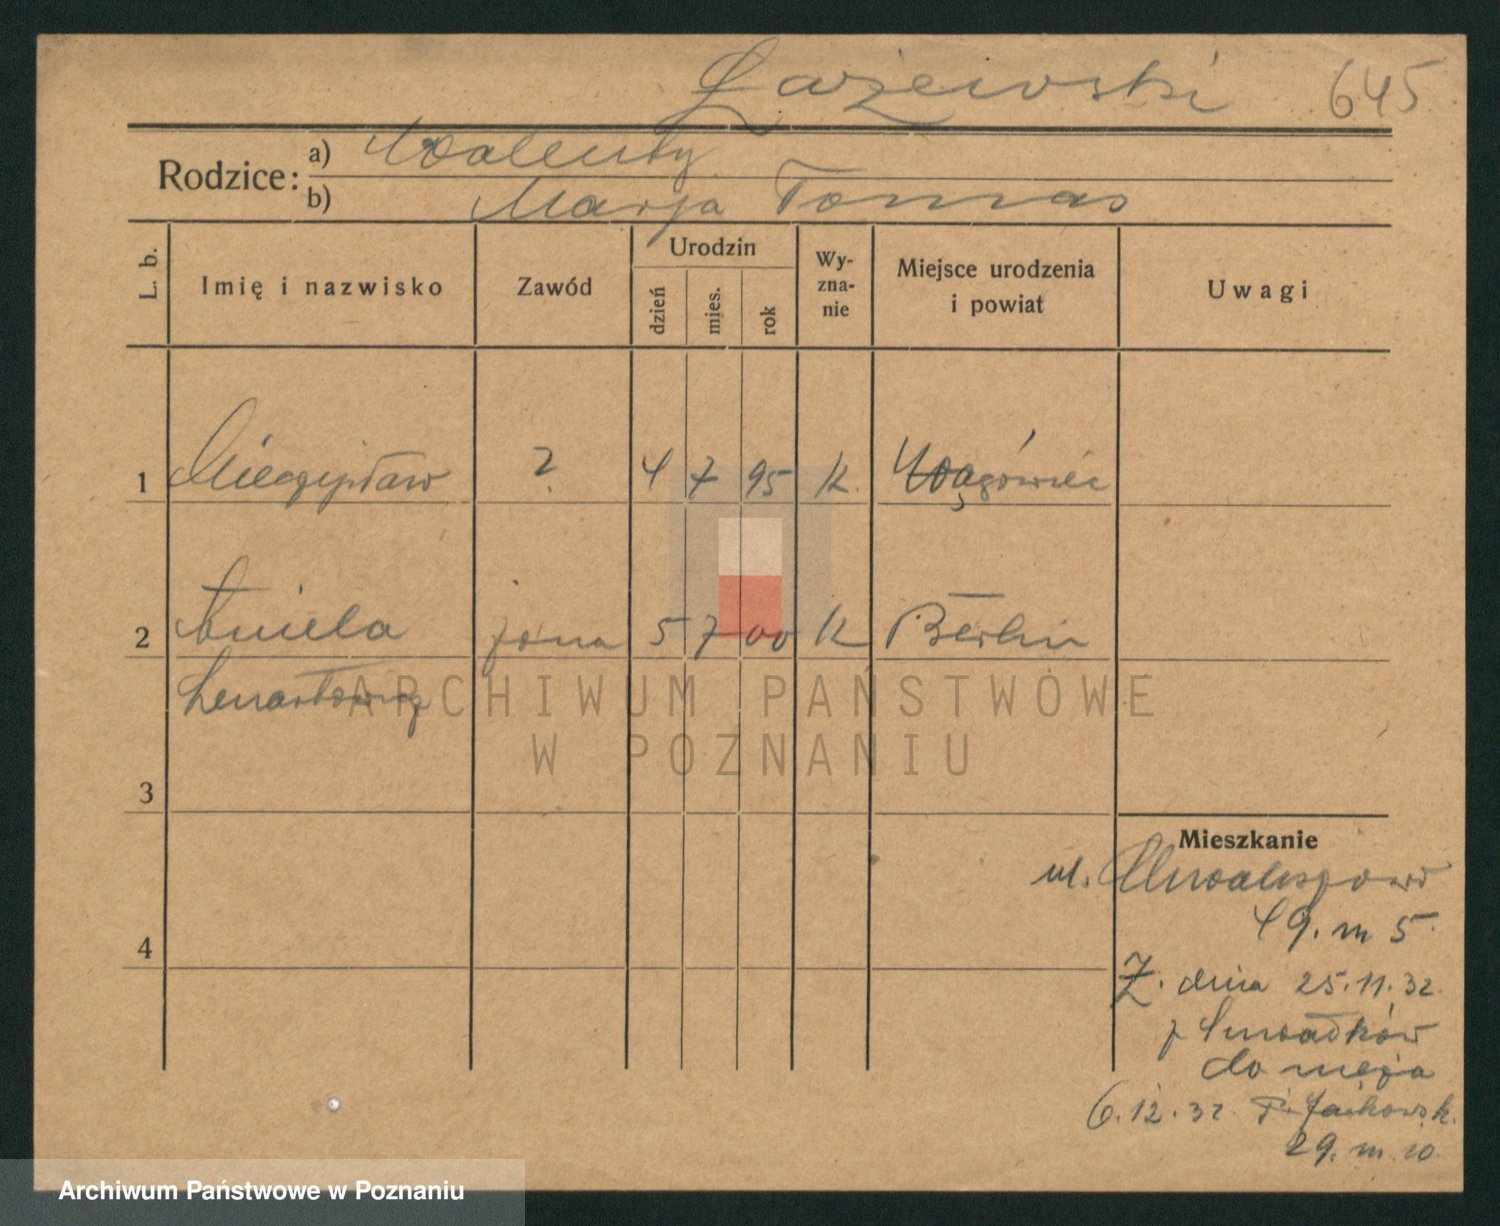 Łażewski 645
Rodzice: a) Walenty
b) Marja Tomas
L. b. Imię i nazwisko Zawód Urodzin dzień mies. rok Wy-zna-nie Miejsce urodzenia i powiat Uwagi
1 Mieczysław ? 4 7 95 K. Wągówiec
2 Aniela żona 5 7 00 K Berlin
Lenartowicz
3
Mieszkanie
ul.
49. m 5.
4
Z. dnia 25.11.32.
do męża
6.12.32.
29. m. 10
ARCHIWUM PAŃSTWOWE
W POZNANIU
Archiwum Państwowe w Poznaniu